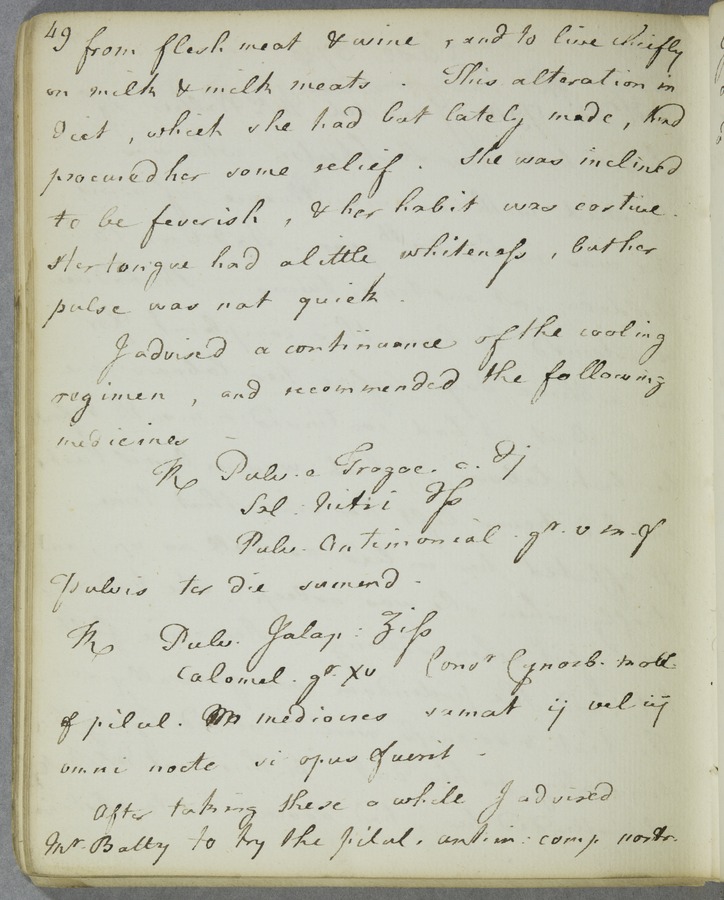 49 from flesh meat & wine, and to live chiefly
on milk & milk meats. This alteration in
Diet, which she had but lately made, had
procured her some relief. She was inclined
to be feverish, & her habit was costive.
Her tongue had a little whiteness, but her
pulse was not quick.
I advised a continuance of the cooling
regimen, and recommended the following
medicines
℞ Pulv. e Tragac. c. ℈j
Sal. Nitri ℈ß
Pulv. Antimonial. gr. v m. f
Pulvis ter die sumend.
℞ Pulv. Jalap: ʒiß
Calomel. gr XV Consr Cynosb. moll.
f pilul. mediocres sumat ij vel iij
omni nocte si opus fuerit
After taking these a while I advised
Batty to try the pilul. antim: comp. nostr.